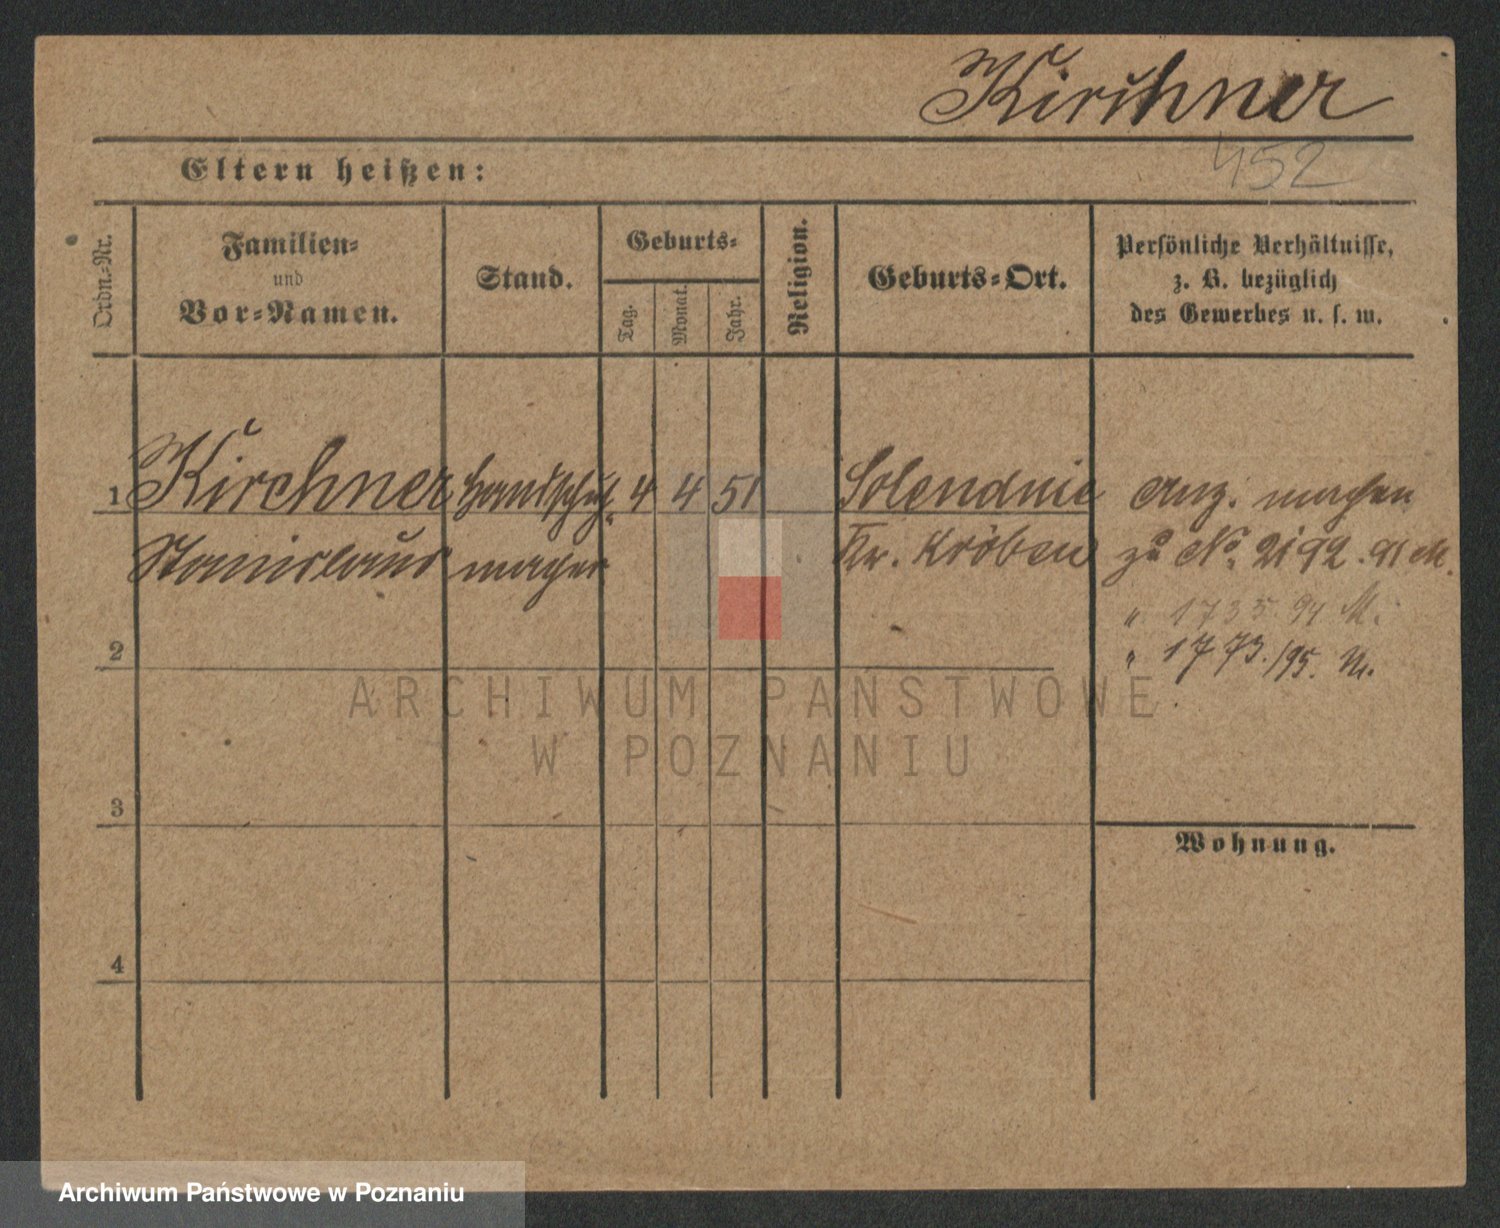 Kirchner
452
Eltern heißen:
Ordn.-Nr.
Familien-
und
Vor-Namen.
Stand.
Geburts-
Tag.
Monat.
Jahr.
Religion.
Geburts-Ort.
Persönliche Verhältnisse,
z. B. bezüglich
des Gewerbes u. s. w.
1 Kirchner Handschuh 4 4 51
Stanislaus macher Kr. Kröben
zu No. 2192.91 M.
" 1735.94 M.
" 1773./95. M.
2
3
4
Wohnung.
ARCHIWUM PAŃSTWOWE
W POZNANIU
Archiwum Państwowe w Poznaniu